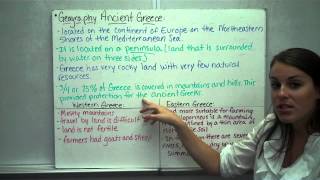 • Geography Ancient Greece:
- located on the continent of Europe on the Northeastern
Shores of the Mediterranean Sea.
- It is located on a peninsula (land that is surrounded
by water on three sides.)
- Greece has very rocky land with very few natural
resources.
- 3/4 or 75% of Greece is covered in mountains and hills. This
provided protection for the Ancient Greeks.
Western Greece:
- Mostly mountains
- travel by land is difficult
- land is not fertile
- farmers had goats and sheep
Eastern Greece:
most suitable for farming
is
outlined by a thin area of
there are several